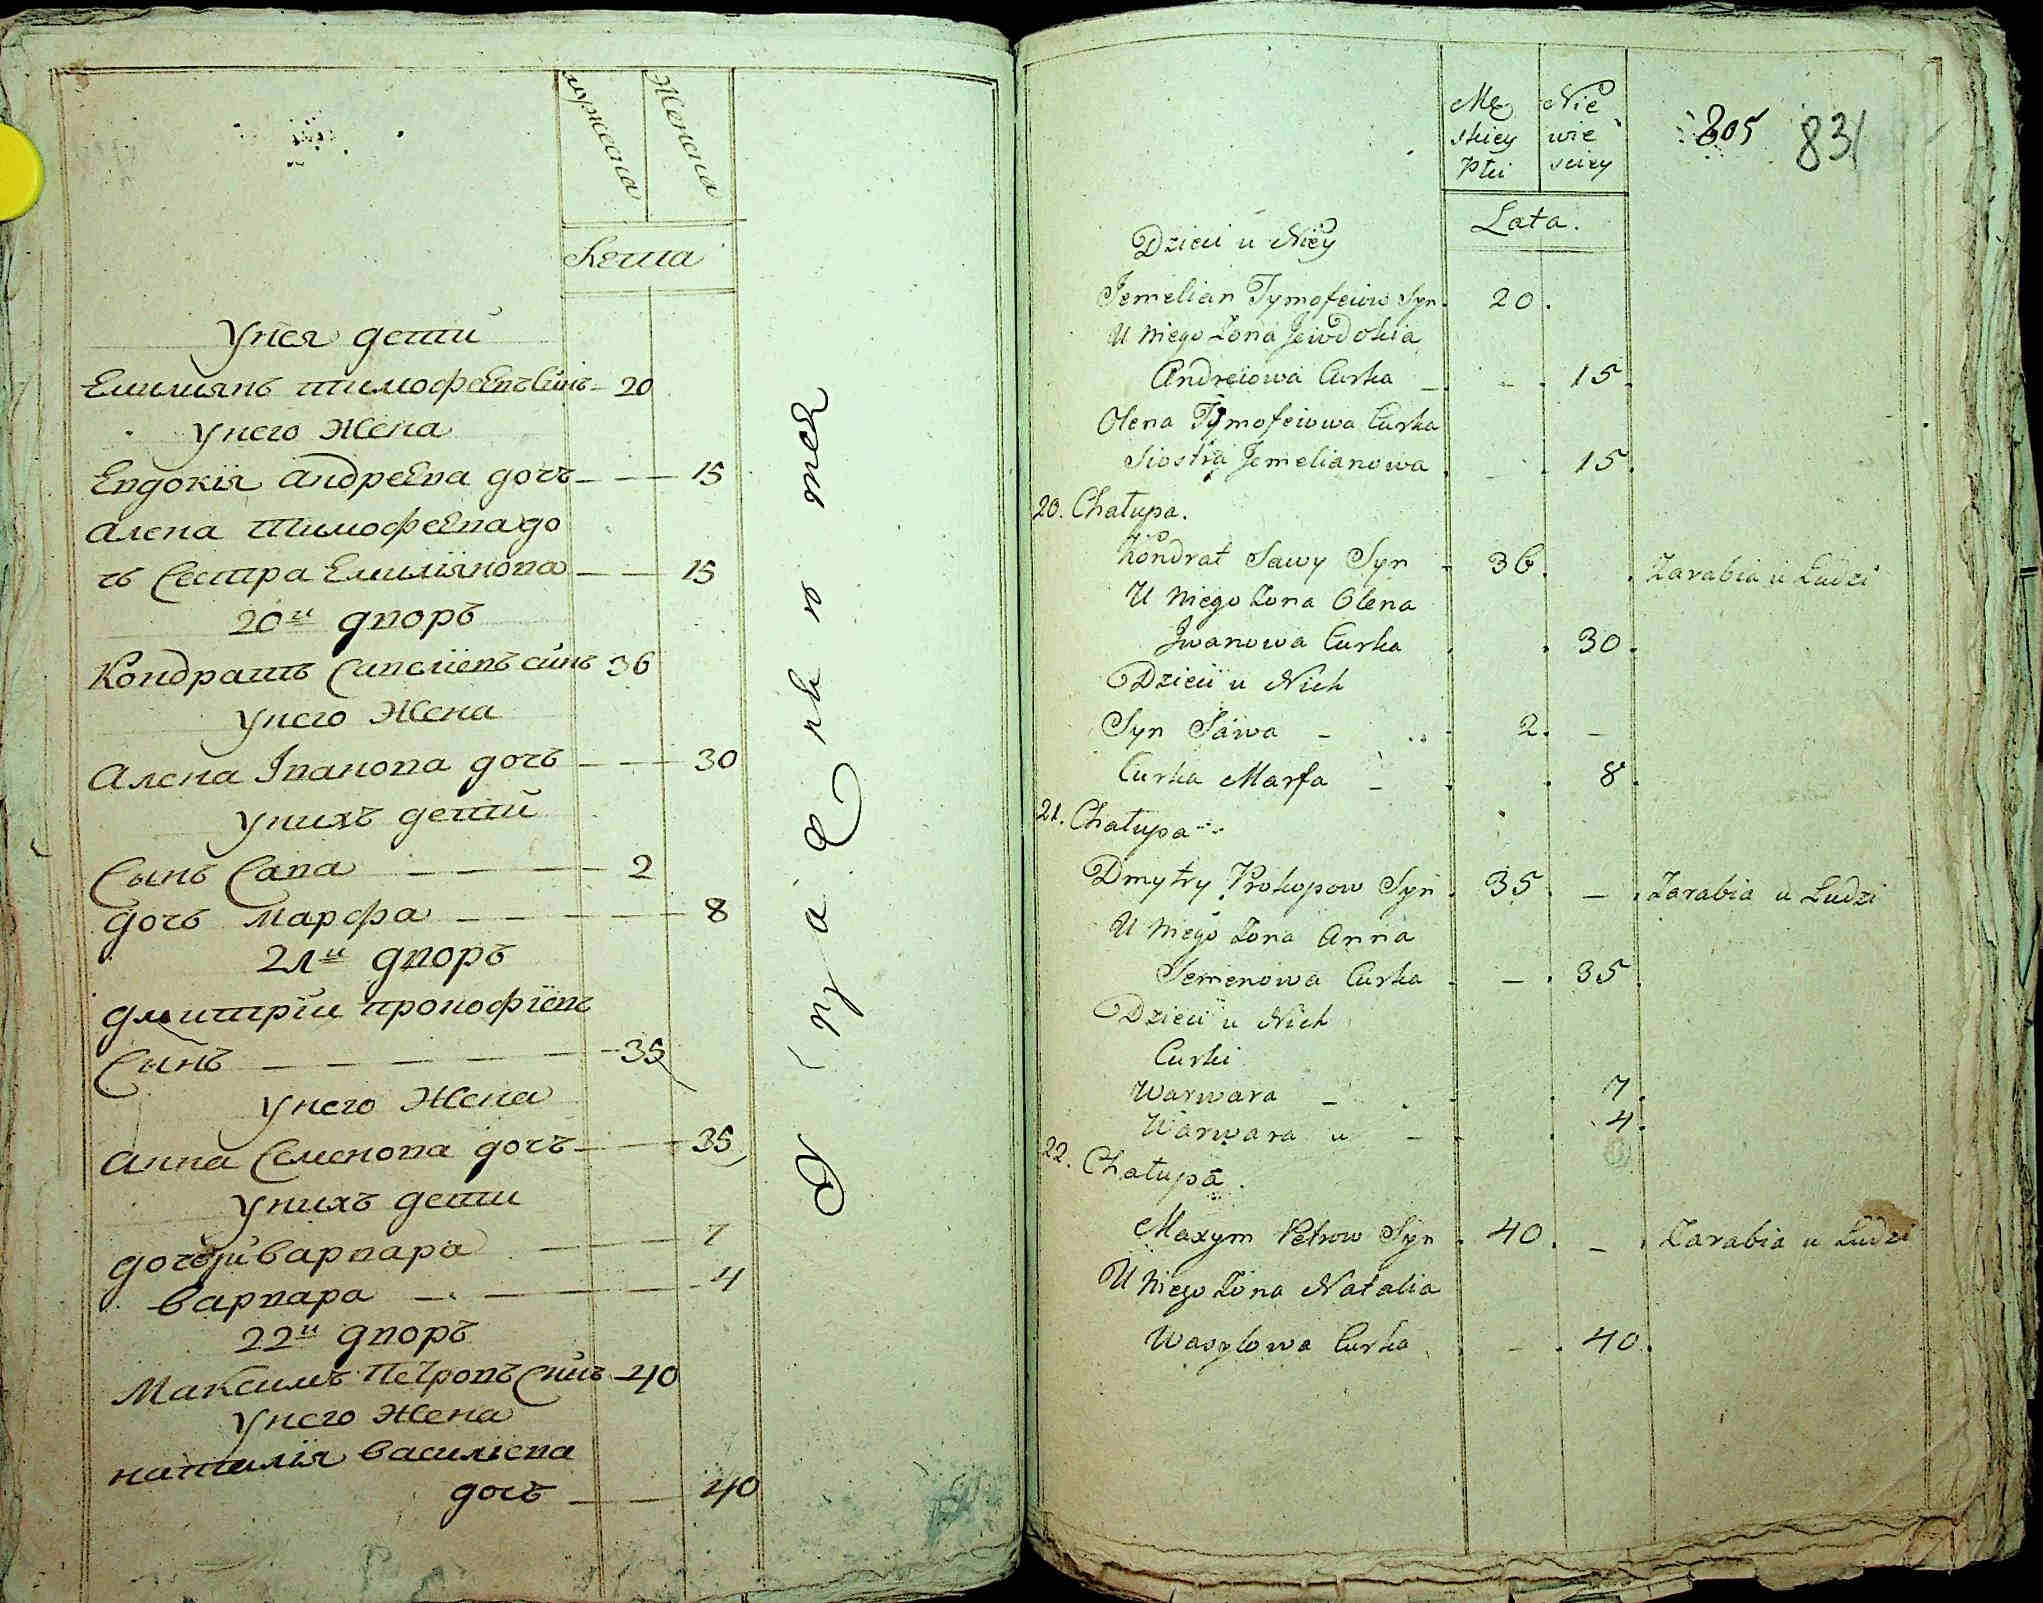 мужеска
Женска
Лета
У нея дети
Емилиянъ тимофеевъ Синъ 20
У него Жена
Евдокія андреева дочъ 15
алена тимофеева до
чъ Сестра Емиліянова 15
20й дворъ
Кондратъ Савелиевъ синъ 36
У него Жена
Алена Іванова дочъ 30
У нихъ дети
Сынъ Сава 2
дочъ Марфа 8
21й дворъ
дмитріи прокофіевъ
Сынъ 35
У него Жена
анна Семенова дочъ 35
У нихъ дети
дочери варвара 7
варвара 4
22й дворъ
Максимъ Петровъ Синъ 40
У него Жена
наталія васильева
дочъ 40
Mę
skiey
Płci
Nie
wie
sciey
805 83
Lata.
Dzieci u Niey
Jemelian Tymofeiow Syn 20.
U Niego Zona Jewdokia
Andreiowa Curka 15.
Olena Tymofeiowa Curka
Siostra Jemelianowa 15.
20. Chałupa.
Kondrat Sawy Syn 36. Zarabia u Ludzi
U Niego Zona Olena
Jwanowa Curka 30.
Dzieci u Nich
Syn Sawa 2.
Curka Marfa 8.
21. Chałupa
Dmytry Prokopow Syn 35. Zarabia u Ludzi
U Niego Zona Anna
Semenowa Curka 35.
Dzieci u Nich
Curki
Warwara 7.
Warwara 4.
22. Chałupa.
Maxym Petrow Syn 40. Zarabia u Ludzi
U Niego Zona Natalia
Wasylowa Curka 40.